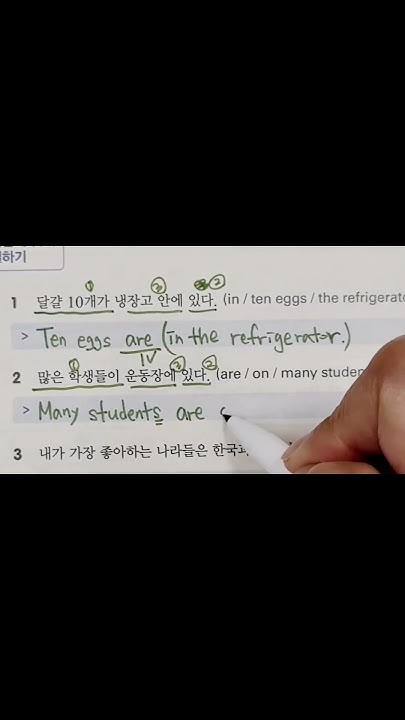 하기
① ③ ②
1 달걀 10개가 냉장고 안에 있다. (in / ten eggs / the
> Ten eggs are (in the refrigerator.)
1V
① ③ ②
2 많은 학생들이 운동장에 있다. (are / on / many
> Many students are
3 내가 가장 좋아하는 나라들은